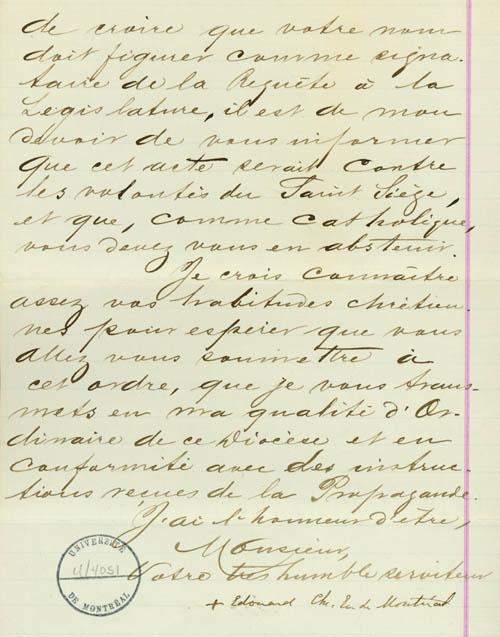 de croire que votre nom
doit figurer comme signa-
taire de la Requête à la
Législature, il est de mon
devoir de vous informer
que cet acte serait contre
les volontés du Saint Siége,
et que, comme catholique,
vous devez vous en abstenir.
Je crois connaître
assez vos habitudes chrétien-
nes pour espérer que vous
allez vous soumettre à
cet ordre, que je vous trans-
mets en ma qualité d'Or-
dinaire de ce Diocèse et en
conformité avec des instruc-
tions reçues de la Propagande.
J'ai l'honneur d'être,
Monsieur,
Votre très humble serviteur
+ Edouard Ch. Ev. de Montréal
UNIVERSITÉ
U/4051
DE MONTRÉAL